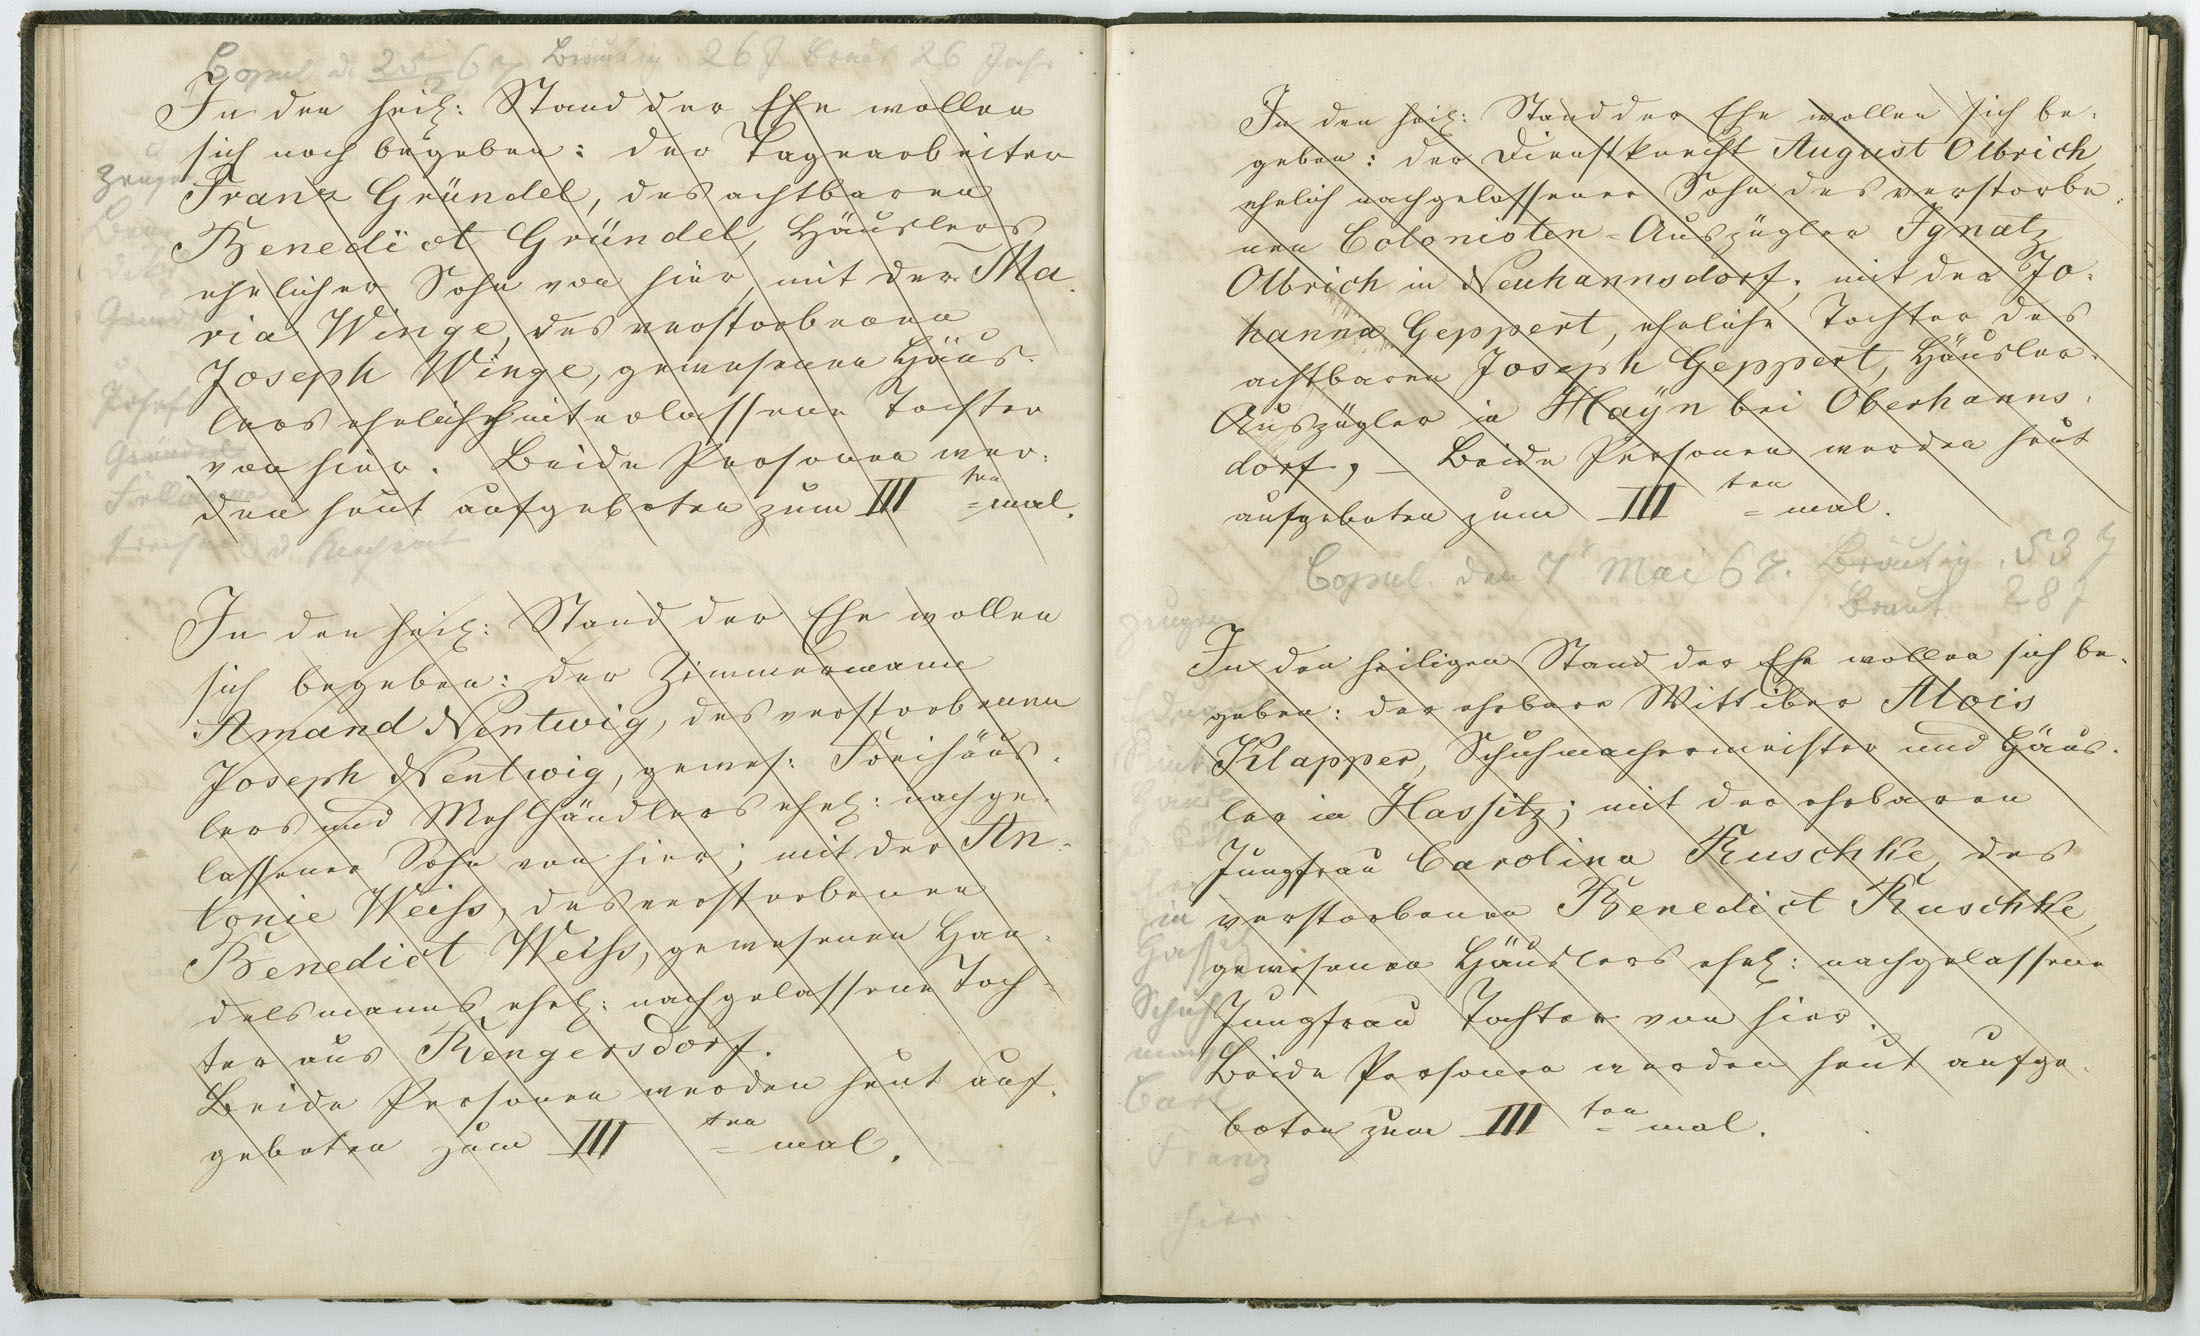 Copul. d. 25/2 67 Bräutig. 26 J Braut 26 Jahr
In den heil: Stand der Ehe wollen
sich noch begeben: der Tagearbeiter
Franz Gründel, des achtbaren
Benedict Gründel, Häuslers
ehelicher Sohn von hier, mit der Ma-
ria Winge, des verstorbenen
Joseph Winge, gewesenen Häus-
lers ehelich hinterlassene Tochter
von hier. Beide Personen wer-
den heut aufgeboten zum III ten =mal.
Zeuge
Bene
dikt
Gründel
Joseph
Gründel
Stellmann
In den heil: Stand der Ehe wollen
sich begeben: der Zimmermann
Amand Nentwig, des verstorbenen
Joseph Nentwig, gewes: Freihäus-
lers und Mehlhändlers ehel: nachge-
lassener Sohn von hier; mit der An-
tonie Weiss, des verstorbenen
Benedict Weiss, gewesenen Han-
delsmanns ehel: nachgelassene Toch-
ter aus Rengersdorf.
Beide Personen werden heut auf-
geboten zum III ten = mal.
In den heil: Stand der Ehe wollen sich be-
geben: der Dienstknecht August Olbrich
ehelich nachgelassener Sohn des verstorbe-
nen Colonisten-Auszügler Ignatz
Olbrich in Neuhannsdorf; mit der Jo-
hanna Geppert, eheliche Tochter des
achtbaren Joseph Geppert, Häusler-
Auszügler in Haÿn bei Oberhanns-
dorf, – Beide Personen werden heut
aufgeboten zum III ten = mal.
Copul. den 7 Mai 67. Bräutig. 53 J
Braut 28 J
In den heiligen Stand der Ehe wollen sich be-
geben: der ehrbare Wittiber Alois
Klapper, Schuhmachermeister und Häus-
ler in Hassitz; mit der ehrbaren
Jungfrau Carolina Ruschke, des
verstorbenen Benedict Ruschke,
gewesenen Händlers ehel: nachgelassene
Jungfrau Tochter von hier.
Beide Personen werden heut aufge-
boten zum III ten = mal.
Zeugen
in
Schuh
Carl
Franz
hier.